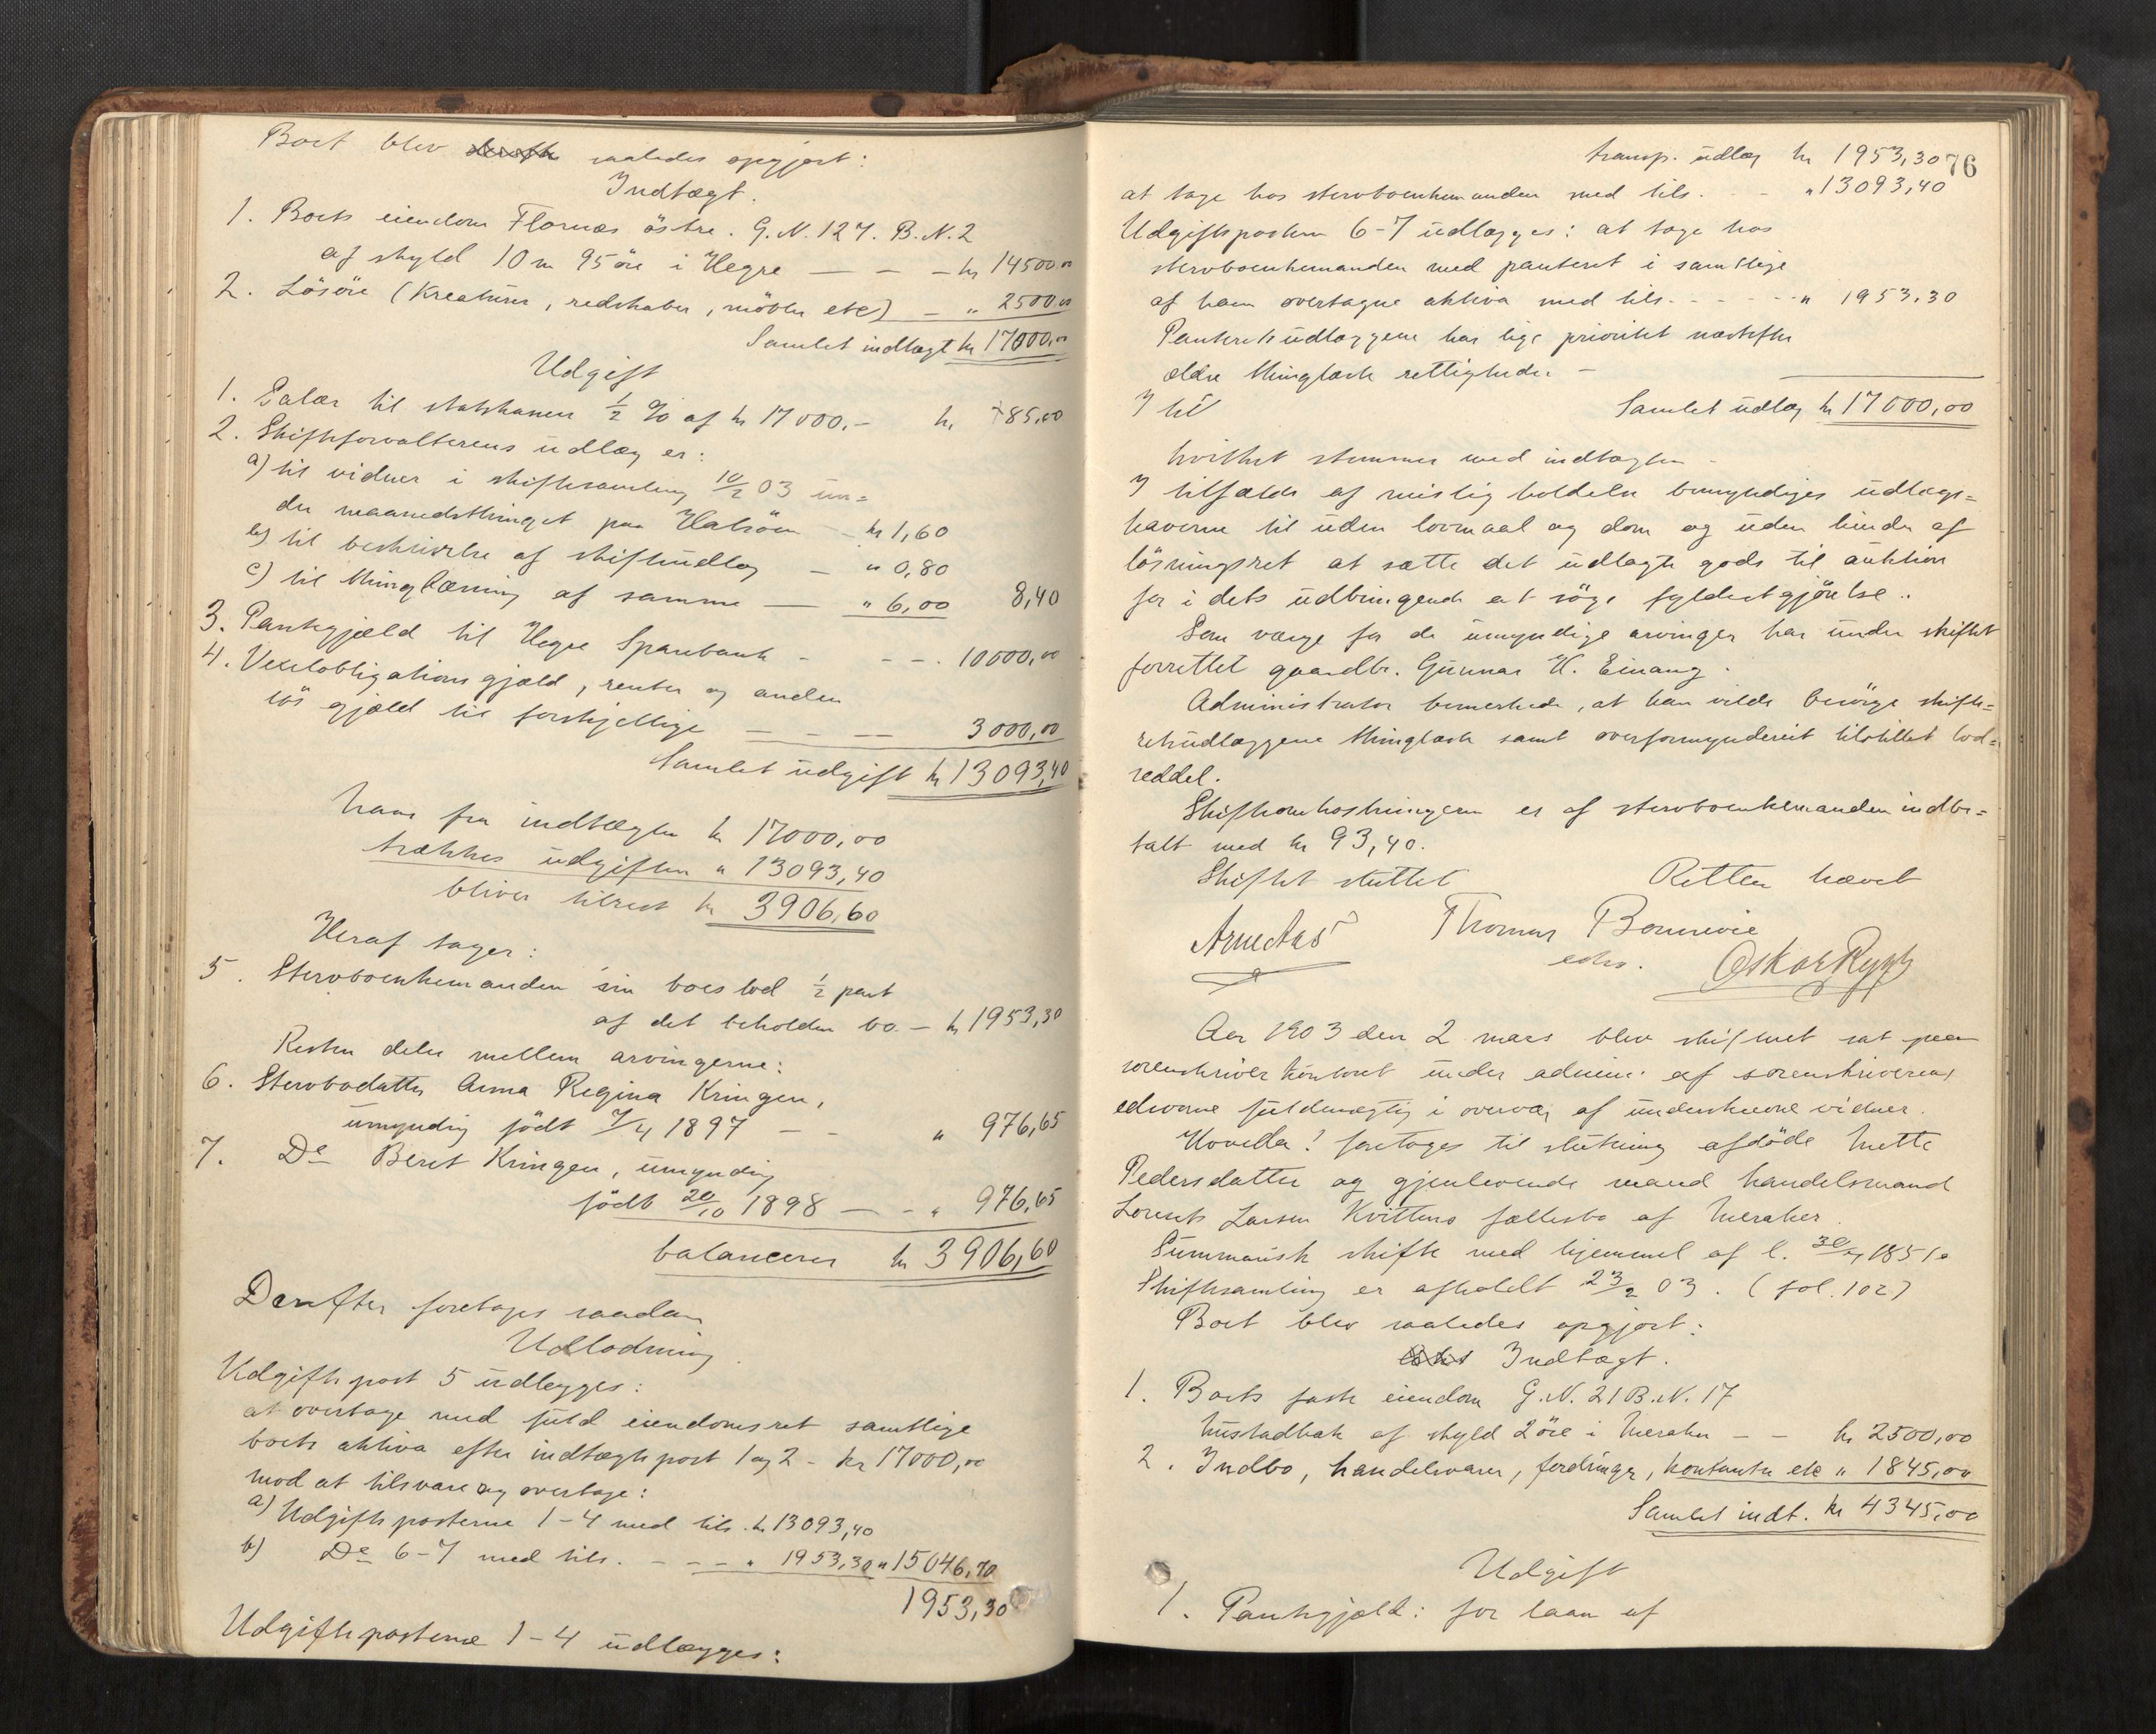 Boet blev saaledes opgjort:
Indtægt.
1. Boets eiendom Flornæs östre. G.N. 127. B.N. 2
af skyld 10 m 95 öre i Hegre — — — kr 14500,00
2. Lösöre (Kreaturer, redskaber, möbler etc) — " 2500,00
Samlet indtægt kr 17000,00
Udgift
1. Salær til statskassen ½ % af kr 17000.- kr. 85,00
2. Skifteforvalterens udlæg er:
a) til vidner i skiftesamling 10/2 03 un=
der maanedsthinget paa Halsöen — kr 1,60
b) til beskrivelse af skifteudlæg — " 0,80
c) til thinglæsning af samme — " 6,00 8,40
3. Pantegjæld til Hegre Sparebank - - - . 10000,00
4. Vexelobligationsgjæld, renter og anden
lös gjæld til forskjellige — — — 3000,00
Samlet udgift kr 13093,40
Naar fra indtægten kr 17000,00
trækkes udgiften " 13093,40
bliver tilrest kr 3906,60
Heraf tager:
5. Stervboenkemanden sin boeslod ½ part
af det beholdne bo. — kr 1953,30
Resten deles mellem arvingerne:
6. Stervbodatter Anna Regina Kringen,
umyndig födt 7/4 1897 — - " 976,65
7. Do Beret Kringen, umyndig
födt 20/10 1898 — - " 976,65
balancerer kr 3906,60
Derefter foretages saadan
Udlodning.
Udgiftspost 5 udlægges:
at overtage med fuld eiendomsret samtlige
boets aktiva efter indtægtspost 1 og 2 - kr 17000,00
mod at tilsvare og overtage:
a) Udgiftsposterne 1-4 med tils. kr 13093,40
b) Do 6-7 med tils. - - - " 1953,30 " 15046,70
1953,30
Udgiftsposterne 1-4 udlægges:
76
transp. udlæg kr 1953,30
at tage hos stervboenkemanden med tils. - - " 13093,40
Udgiftsposterne 6-7 udlægges: at tage hos
stervboenkemanden med panteret i samtlige
af ham overtagne aktiva med tils. - - - - " 1953,30
Panteretsudlæggene har lige prioritet næstefter
ældre thinglæste rettigheder -
I til
Samlet udlæg kr 17000,00
hvilket stemmer med indtægten -
I tilfælde af misligholdelse bemyndiges udlægs=
haverne til uden lovmaal og dom og uden hinder af
lösningsret at sætte det udlagte gods til auktion
for i dets udbringende at söge fyldestgjörelse..
Som værge for de umyndige arvinger har under skiftet
forrettet gaardbr. Gunnar H. Einang.
Administrator bemerkede, at han vilde besörge skifte=
retsudlæggene thinglæst samt overformynderiet tilstillet lod=
seddel.
Skifteomkostningerne er af stervboenkemanden indbe=
talt med kr 93,40.
Skiftet sluttet Retten hævet
Arne Aas Thomas Bonnevie
edsv. Oskar Rygh
Aar 1903 den 2 mars blev skifteret sat paa
sorenskriverkontoret under admin. af sorenskriverens
edsvorne fuldmægtig i overvær af underskrevne vidner.
Hvorda! foretoges til slutning afdöde Mette
Pedersdatter og gjenlevende mand handelsmand
Lorents Larsen Kvittems fællesbo af Meraker.
Summarisk skifte med hjemmel af l. 30/7 1851.
Skiftesamling er afholdt 23/2 03. (fol. 102)
Boet blev saaledes opgjort:
Indtægt.
1. Boets faste eiendom G.N. 21 B.N. 17
Mustadbak af skyld 2 öre i Meraker - - kr 2500,00
2. Indbo, handelsvarer, fordringer, kontanter etc " 1845,00
Samlet indt. kr 4345,00
Udgift
1. Pantegjæld: for laan af